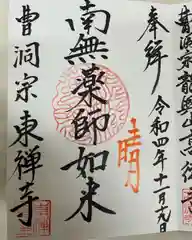 奉拝 令和四年十一月九日
南無薬師如来
晴
曹洞宗東禅寺